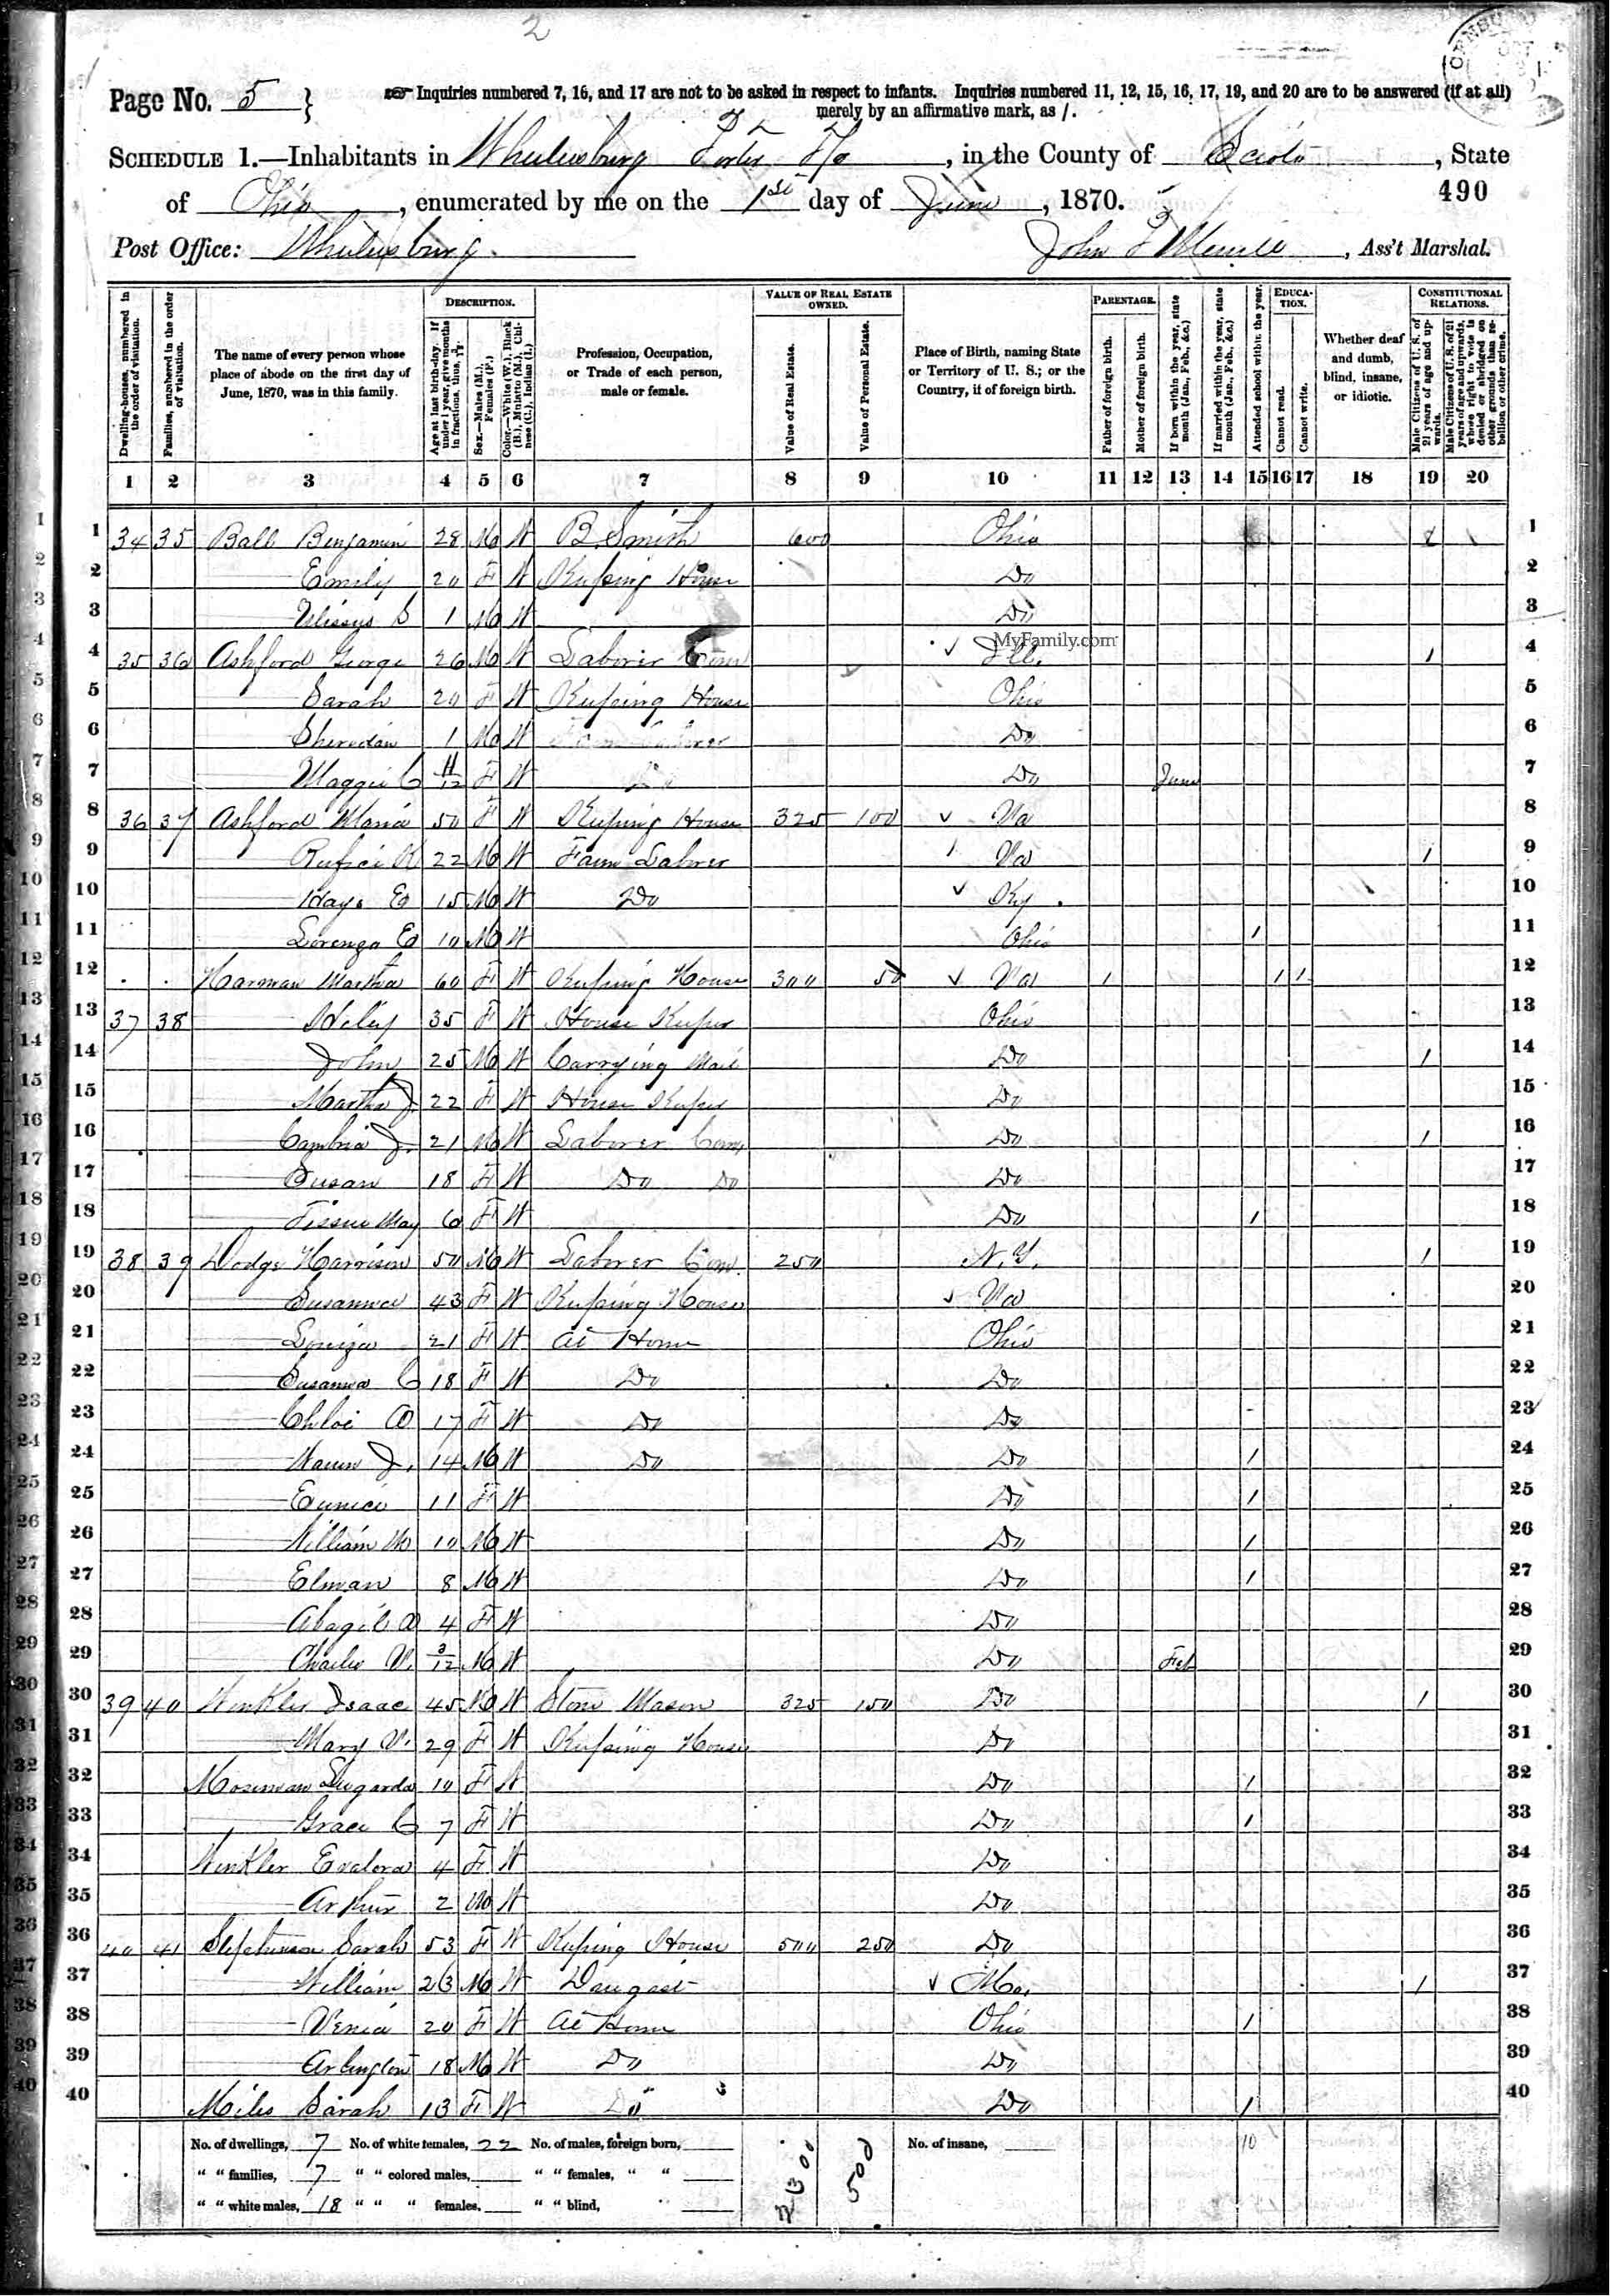 2
Page No. 5 }
Inquiries numbered 7, 16, and 17 are not to be asked in respect to infants. Inquiries numbered 11, 12, 15, 16, 17, 19, and 20 are to be answered (if at all)
merely by an affirmative mark, as /.
SCHEDULE 1.—Inhabitants in Wheelersburg Porter Tp, in the County of Scioto, State
of Ohio, enumerated by me on the 1st day of June, 1870.
490
Post Office: Wheelersburg. John F, Ass't Marshal.
DESCRIPTION. VALUE OF REAL ESTATE OWNED. PARENTAGE. EDUCATION. CONSTITUTIONAL RELATIONS.
Dwelling-houses, numbered in the order of visitation.
Families, numbered in the order of visitation.
The name of every person whose place of abode on the first day of June, 1870, was in this family.
Age at last birth-day. If under 1 year, give months in fractions, thus, 3/12
Sex.—Males (M.), Females (F.)
Color.—White (W.), Black (B.), Mulatto (M.), Chinese (C.), Indian (I.)
Profession, Occupation, or Trade of each person, male or female.
Value of Real Estate.
Value of Personal Estate.
Place of Birth, naming State or Territory of U. S.; or the Country, if of foreign birth.
Father of foreign birth.
Mother of foreign birth.
If born within the year, state month (Jan., Feb., &c.)
If married within the year, state month (Jan., Feb., &c.)
Attended school within the year.
Cannot read.
Cannot write.
Whether deaf and dumb, blind, insane, or idiotic.
Male Citizens of U. S. of 21 years of age and upwards.
Male Citizens of U. S. of 21 years of age and upwards, whose right to vote is denied or abridged on other grounds than rebellion or other crime.
1 2 3 4 5 6 7 8 9 10 11 12 13 14 15 16 17 18 19 20
1 34 35 Ball Benjamin 28 M W B. Smith 600 Ohio 1 1
2 Emily 20 F W Keeping House Do 2
3 Ulissys S 1 M W Do 3
MyFamily.com
4 35 36 Ashford George 26 M W Laborer Com Ill. 1 4
5 Sarah 20 F W Keeping House Ohio 5
6 Sheredan 1 M W Do 6
7 Maggie C 11/12 F W Do June 7
8 36 37 Ashford Maria 50 F W Keeping House 325 100 Va 8
9 K 22 M W Farm Laborer Va 1 9
10 E 15 M W Do Ky. 10
11 Lorenzo E 10 M W Ohio 1 11
12 Harman Martha 60 F W Keeping House 300 50 Va 1 1 1 12
13 37 38 35 F W House Keeper Ohio 13
14 John 25 M W Carrying Mail Do 1 14
15 Martha J 22 F W House Keeper Do 15
16 Cambria J. 21 M W Laborer Com, Do 1 16
17 Susan 18 F W Do Do Do 17
18 May 6 F W Do 1 18
19 38 39 Dodge Harrison 50 M W Laborer Com. 250 N. Y. 1 19
20 Susanna 43 F W Keeping House Va 20
21 Louiza 21 F W At Home Ohio 21
22 Susanna C 18 F W Do Do 22
23 Chloe 17 F W Do Do 23
24 J. 14 M W Do Do 1 24
25 Eunice 11 F W Do 1 25
26 William M 10 M W Do 1 26
27 Elman 8 M W Do 1 27
28 Abagil A 4 F W Do 28
29 Charlie V. 3/12 M W Do Feb 29
30 39 40 Winkler Isaac 45 M W Stone Mason 325 150 Do 1 30
31 Mary V. 29 F W Keeping House Do 31
32 Mosuman Lugarda 10 F W Do 1 32
33 Grace C 7 F W Do 1 33
34 Winkler Evalora 4 F W Do 34
35 Arthur 2 M W Do 35
36 40 41 Stephenson Sarah 53 F W Keeping House 500 250 Do 36
37 William 23 M W Mo. 1 37
38 Venia 20 F W At Home Ohio 1 38
39 Arlington 18 M W Do Do 39
40 Miles Sarah 13 F W Do Do 1 40
No. of dwellings, 7 No. of white females, 22 No. of males, foreign born, 2300 500 No. of insane, 10
" " families, 7 " " colored males, " " females, " "
" " white males, 18 " " " females, " " blind,